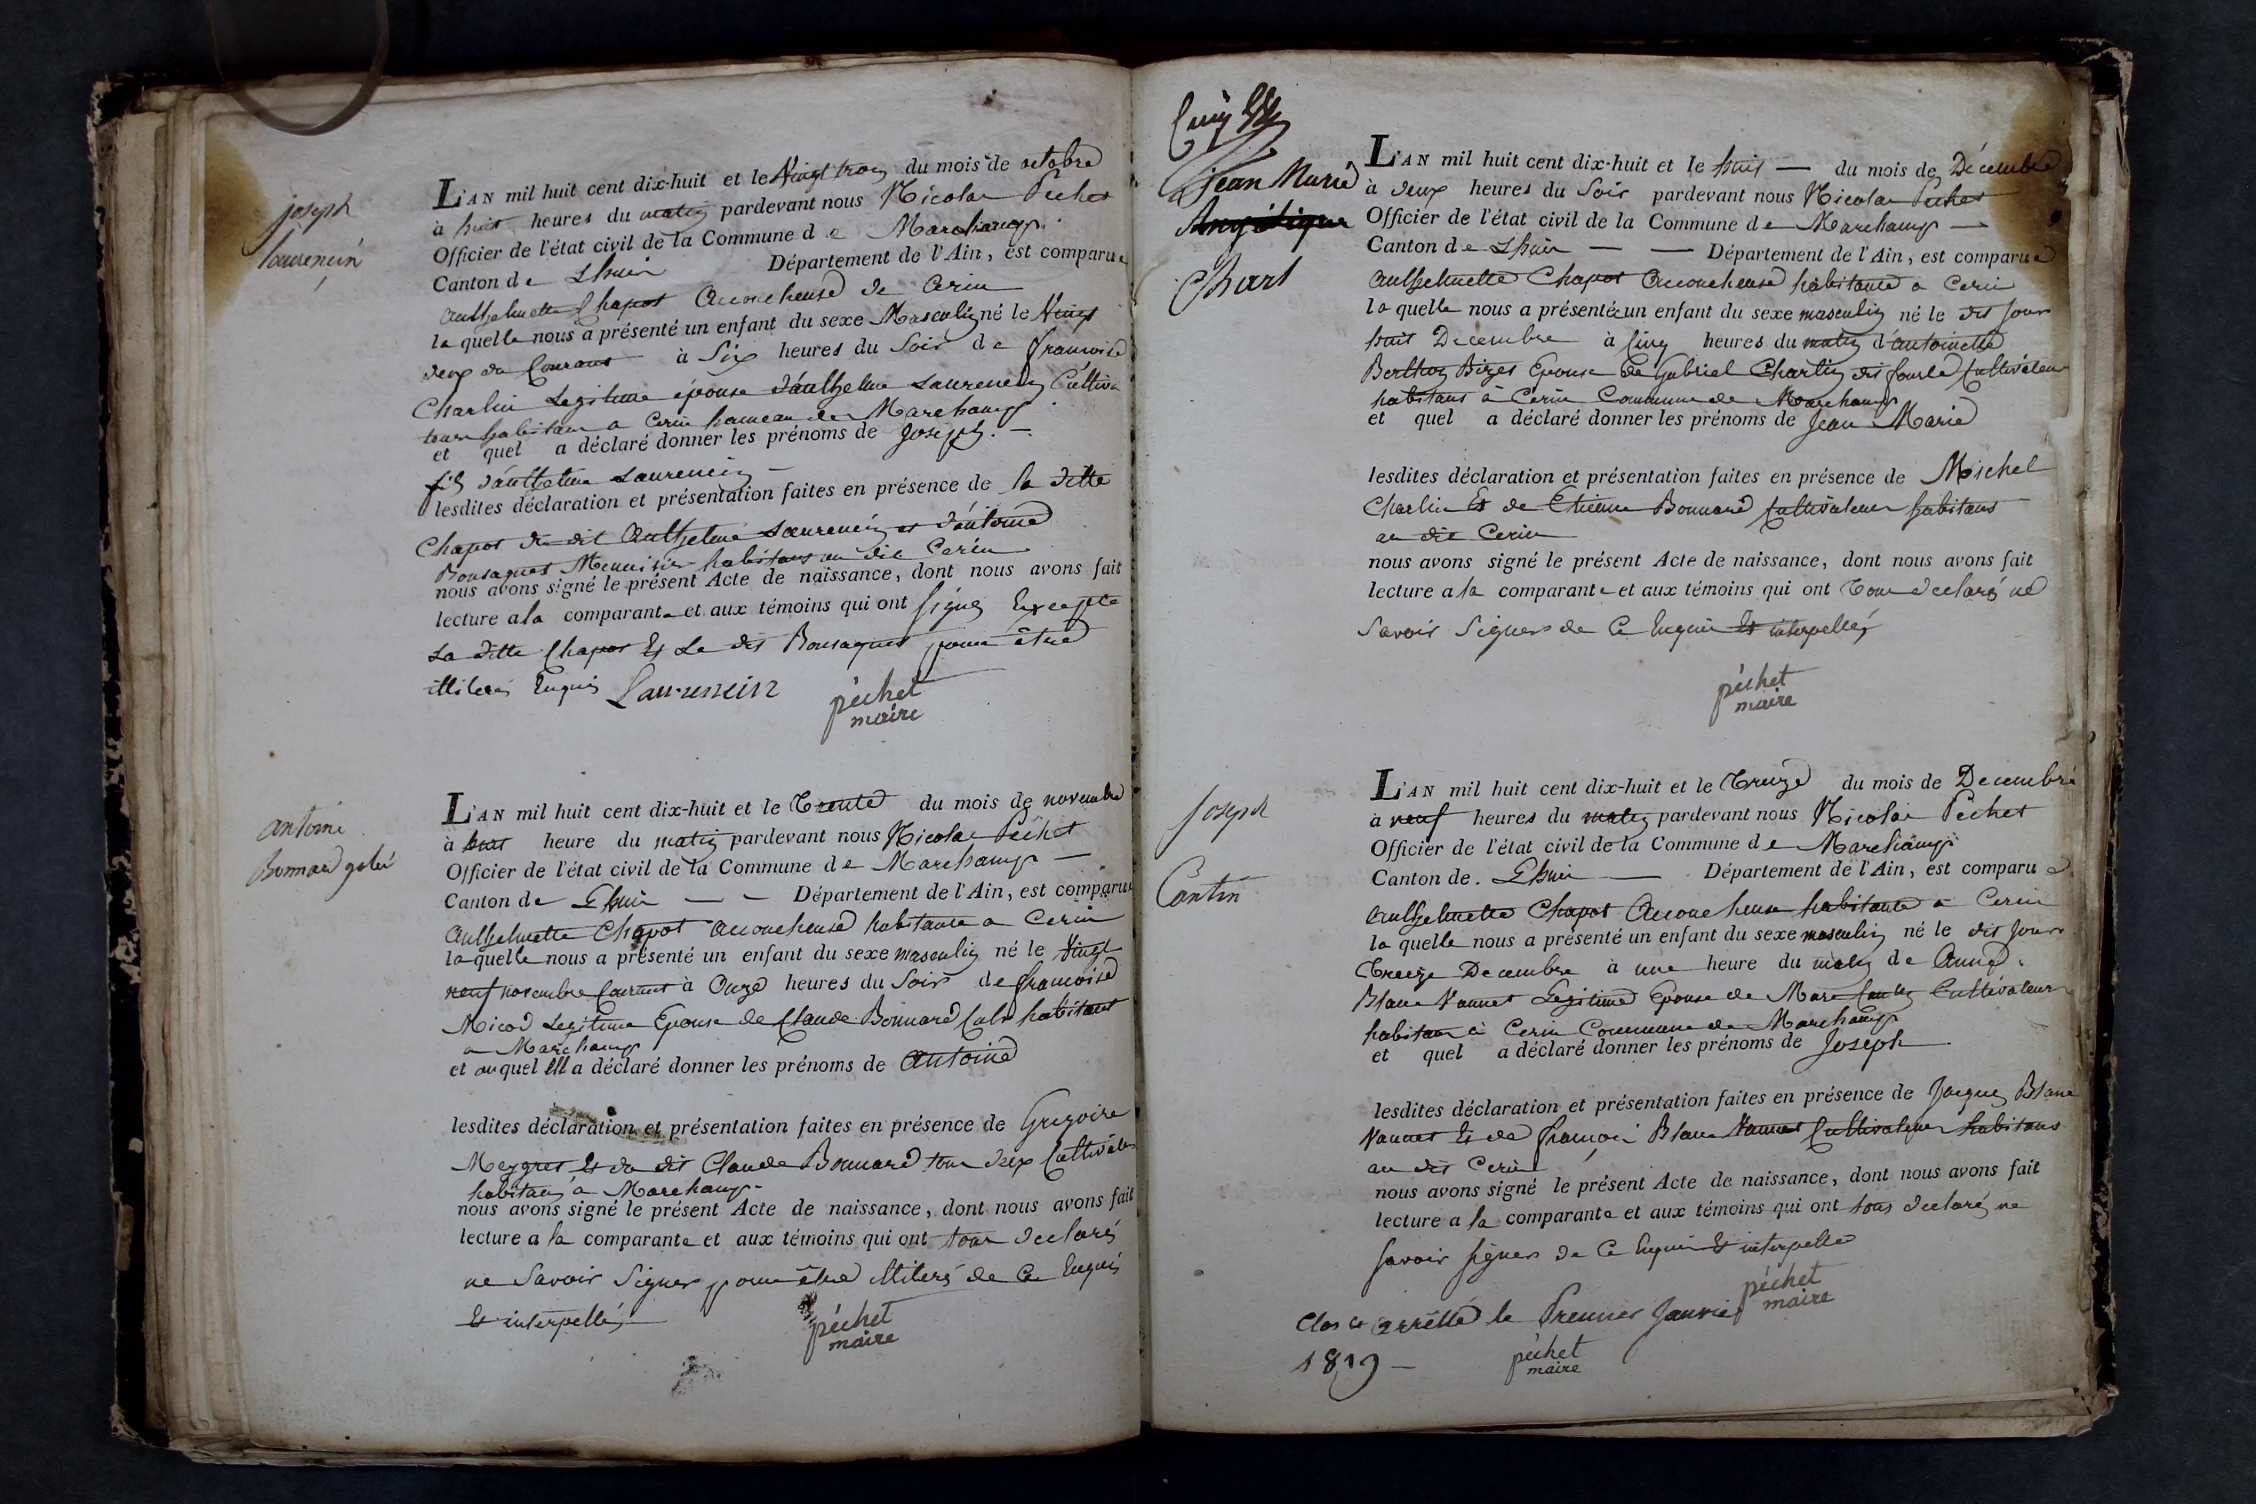 joseph
laurencin
L'AN mil huit cent dix-huit et le Vingt trois du mois de octobre
à huit heures du matin pardevant nous Nicolas Pechet
Officier de l'état civil de la Commune de Marchamp.
Canton de Lhuis Département de l'Ain, est comparue
Anthelmette Chapot Accoucheuse de Cerin
laquelle nous a présenté un enfant du sexe Masculin né le Vingt
deux du Courant à Six heures du Soir de francoise
Charlin Legitime épouse d'anthelme Laurencin Cultiva
teur habitant a Cerin hameau de Marchamp
et quel a déclaré donner les prénoms de Joseph. —
fils d'anthelme Laurencin —
lesdites déclaration et présentation faites en présence de la ditte
Chapot du dit Anthelme Laurencin et d'antoine
Bonsaquet Menuisier habitans au dit Cerin
nous avons signé le présent Acte de naissance, dont nous avons fait
lecture a la comparante et aux témoins qui ont signé Excepté
La ditte Chapot Et Le dit Bonsaquet pour être
illiterés Enquis Laurencin péchet
maire
antoine
Bonnard
L'AN mil huit cent dix-huit et le Trente du mois de novembre
à heure du matin pardevant nous Nicolas Péchet
Officier de l'état civil de la Commune de Marchamp —
Canton de Lhuis — — Département de l'Ain, est comparue
Anthelmette Chapot accoucheuse habitante a Cerin
laquelle nous a présenté un enfant du sexe masculin né le Vingt
neuf novembre Courant à Onze heures du Soir de francoise
Micod Legitime Epouse de Claude Bonnard habitant
a Marchamp
et auquel Elle a déclaré donner les prénoms de Antoine
lesdites déclaration et présentation faites en présence de Gregoire
Meygret Et du dit Claude Bonnard tous deux Cultivateurs
habitans a Marchamp.
nous avons signé le présent Acte de naissance, dont nous avons fait
lecture a la comparante et aux témoins qui ont tous declarés
ne Savoir Signer pour être illiterés de Ce Enquis
Et interpellés péchet
maire
Jean Marie
Angélique
Charl
L'AN mil huit cent dix-huit et le huit — du mois de Décembre
à deux heures du Soir pardevant nous Nicolas Pechet
Officier de l'état civil de la Commune de Marchamp —
Canton de Lhuis — — Département de l'Ain, est comparue
Anthelmette Chapot Accoucheuse habitante a Cerin
laquelle nous a présenté un enfant du sexe masculin né le dit jour
huit Decembre à Cinq heures du matin d'antoinette
Berthon Epouse de Gabriel Charlin Cultivateur
habitans à Cerin Commune de Marchamp
et quel a déclaré donner les prénoms de Jean Marie
lesdites déclaration et présentation faites en présence de Michel
Charlin Et de Etienne Bonnard Cultivateurs habitans
au dit Cerin
nous avons signé le présent Acte de naissance, dont nous avons fait
lecture a la comparante et aux témoins qui ont Tous declaré ne
Savoir Signer de Ce Enquis Et interpellés
péchet
maire
Joseph
Cantin
L'AN mil huit cent dix-huit et le Treize du mois de Decembre
à neuf heures du matin pardevant nous Nicolas Pechet
Officier de l'état civil de la Commune de Marchamp
Canton de. Lhuis — Département de l'Ain, est comparue
Anthelmette Chapot Accoucheuse habitante a Cerin
laquelle nous a présenté un enfant du sexe masculin né le dit jour
Treize Decembre à une heure du matin de Anne
Blanc Vannet Legitime Epouse de Marc Cantin Cultivateur
habitans à Cerin Commune de Marchamp
et quel a déclaré donner les prénoms de Joseph
lesdites déclaration et présentation faites en présence de Jacques Blanc
Vannet Et de françois Blanc Vannet Cultivateurs habitans
au dit Cerin
nous avons signé le présent Acte de naissance, dont nous avons fait
lecture a la comparante et aux témoins qui ont tous declaré ne
savoir signer de Ce Enquis Et interpellé
péchet
maire
Clos et arrêtté le Premier Janvier
1819 — péchet
maire